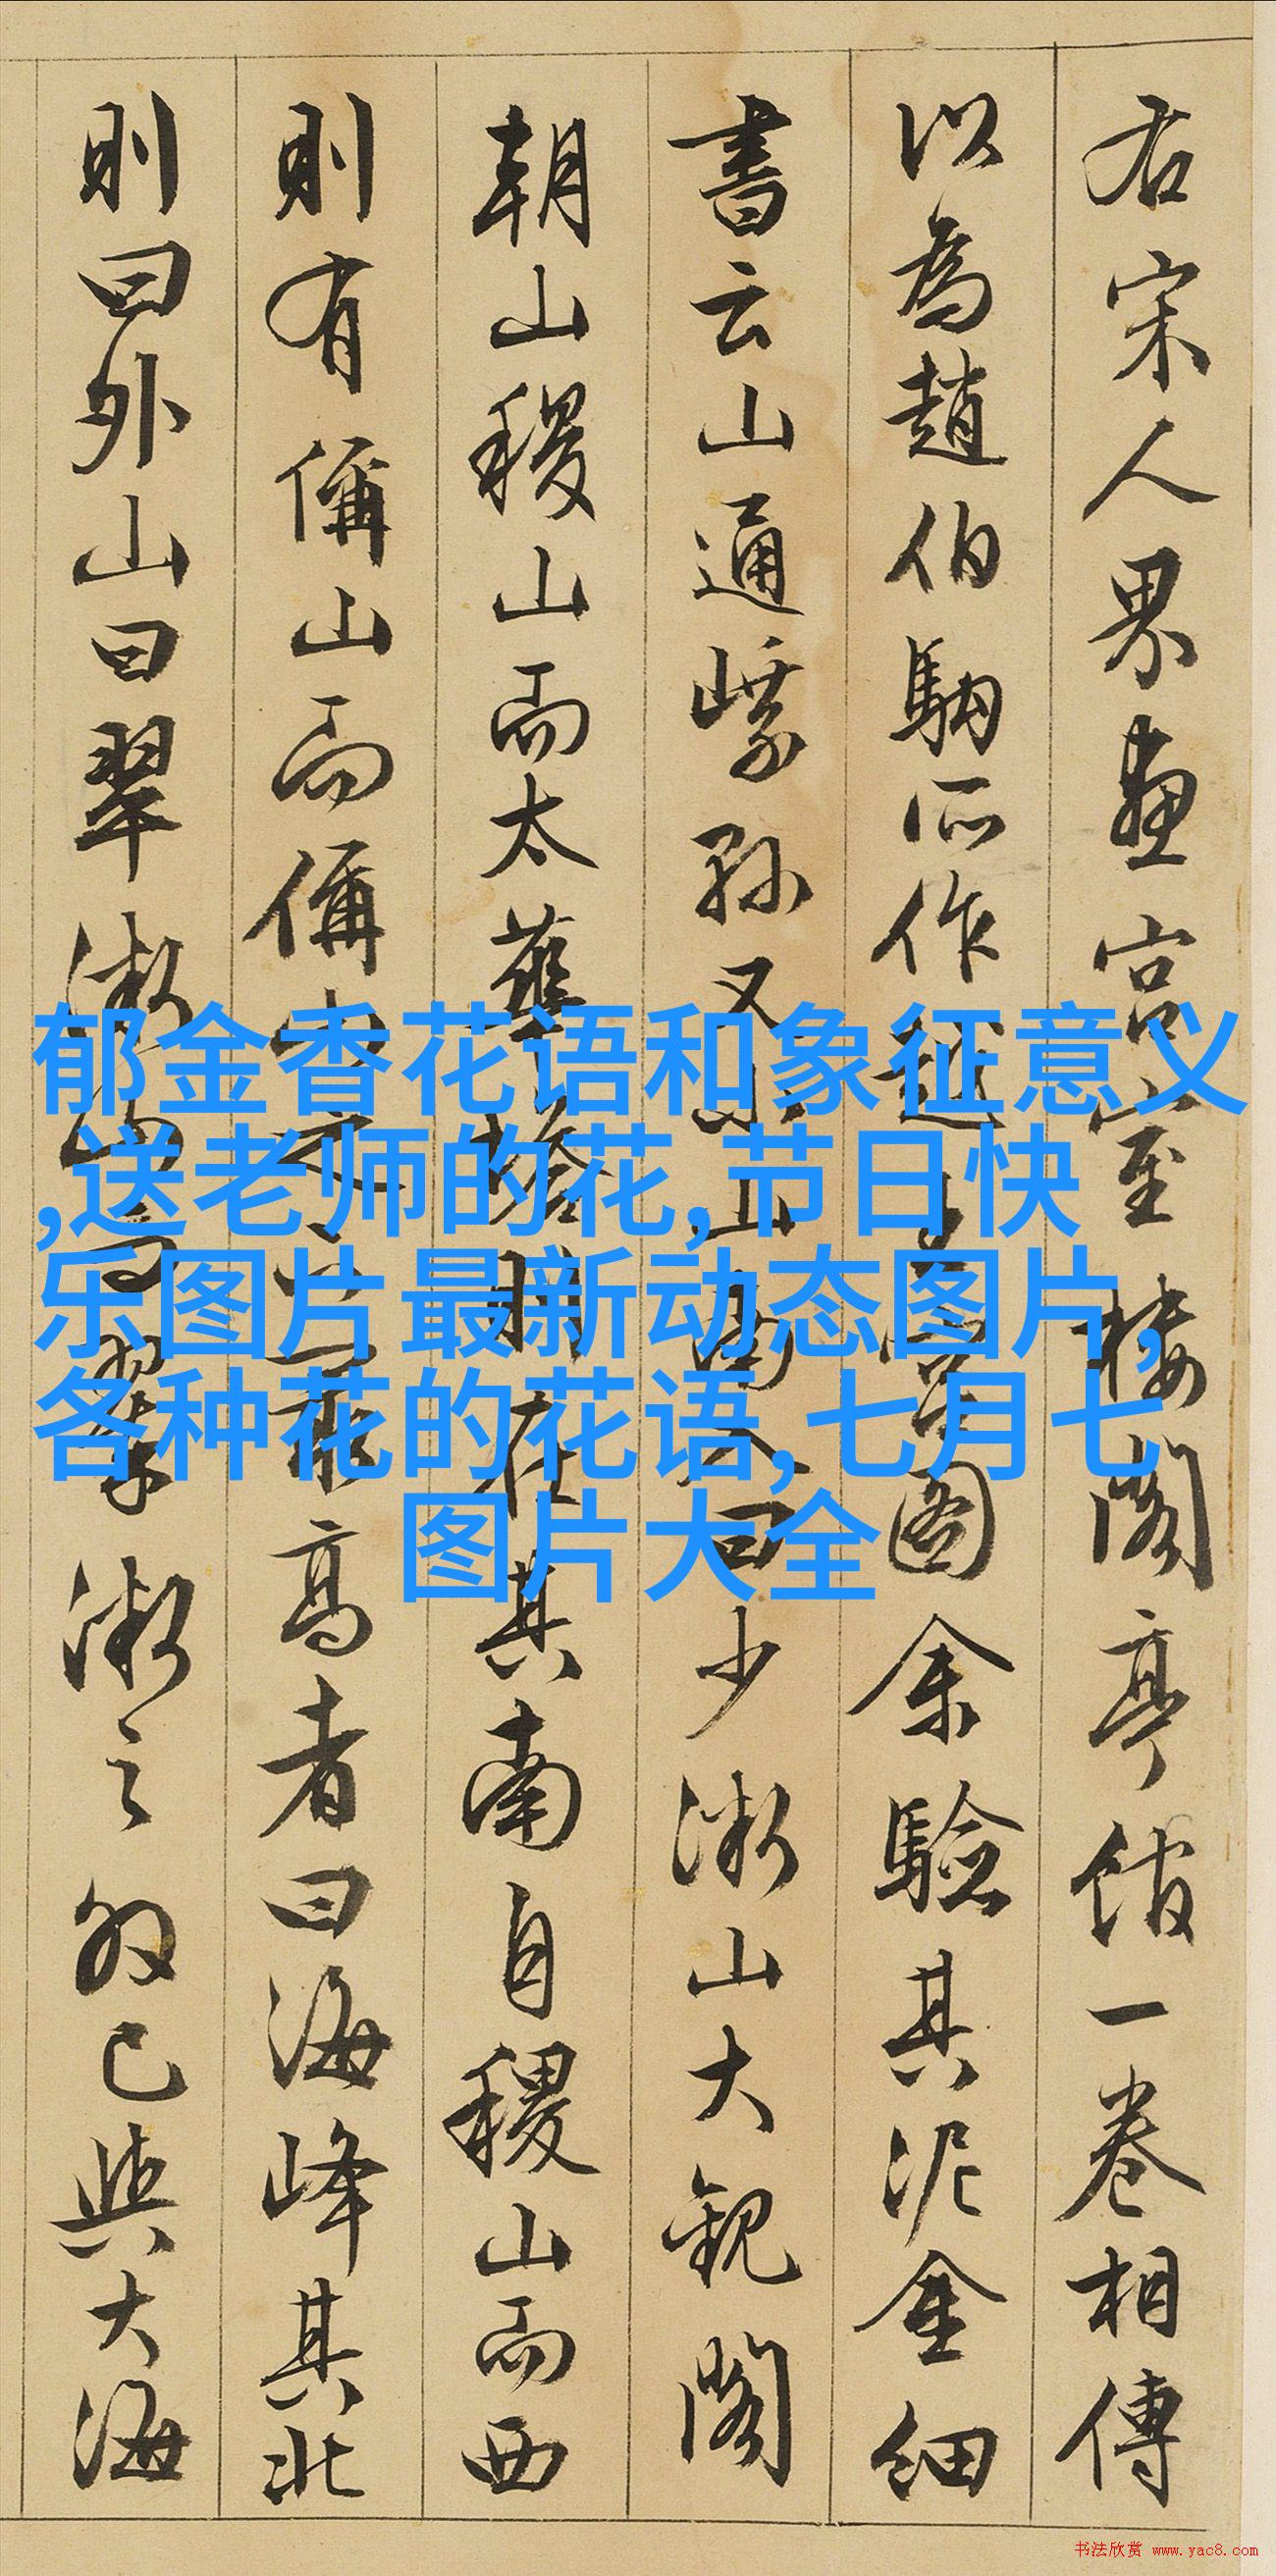 右宋人界畫宮室樓閣亭館一卷相傳
以為趙伯駒所作越圖余驗其泥金細
書云山通孫又山南曰少漱山大觀閣
朝山稷山而太華塔則在其南自稷山而西
則有偁山而偁高者曰海峰其北
則曰外山曰翠漱漱之外已與大海
郁金香花语和象征意义
,送老师的花,节日快
乐图片最新动态图片,
各种花的花语,七月七
图片大全
书法欣赏 www.yac8.com